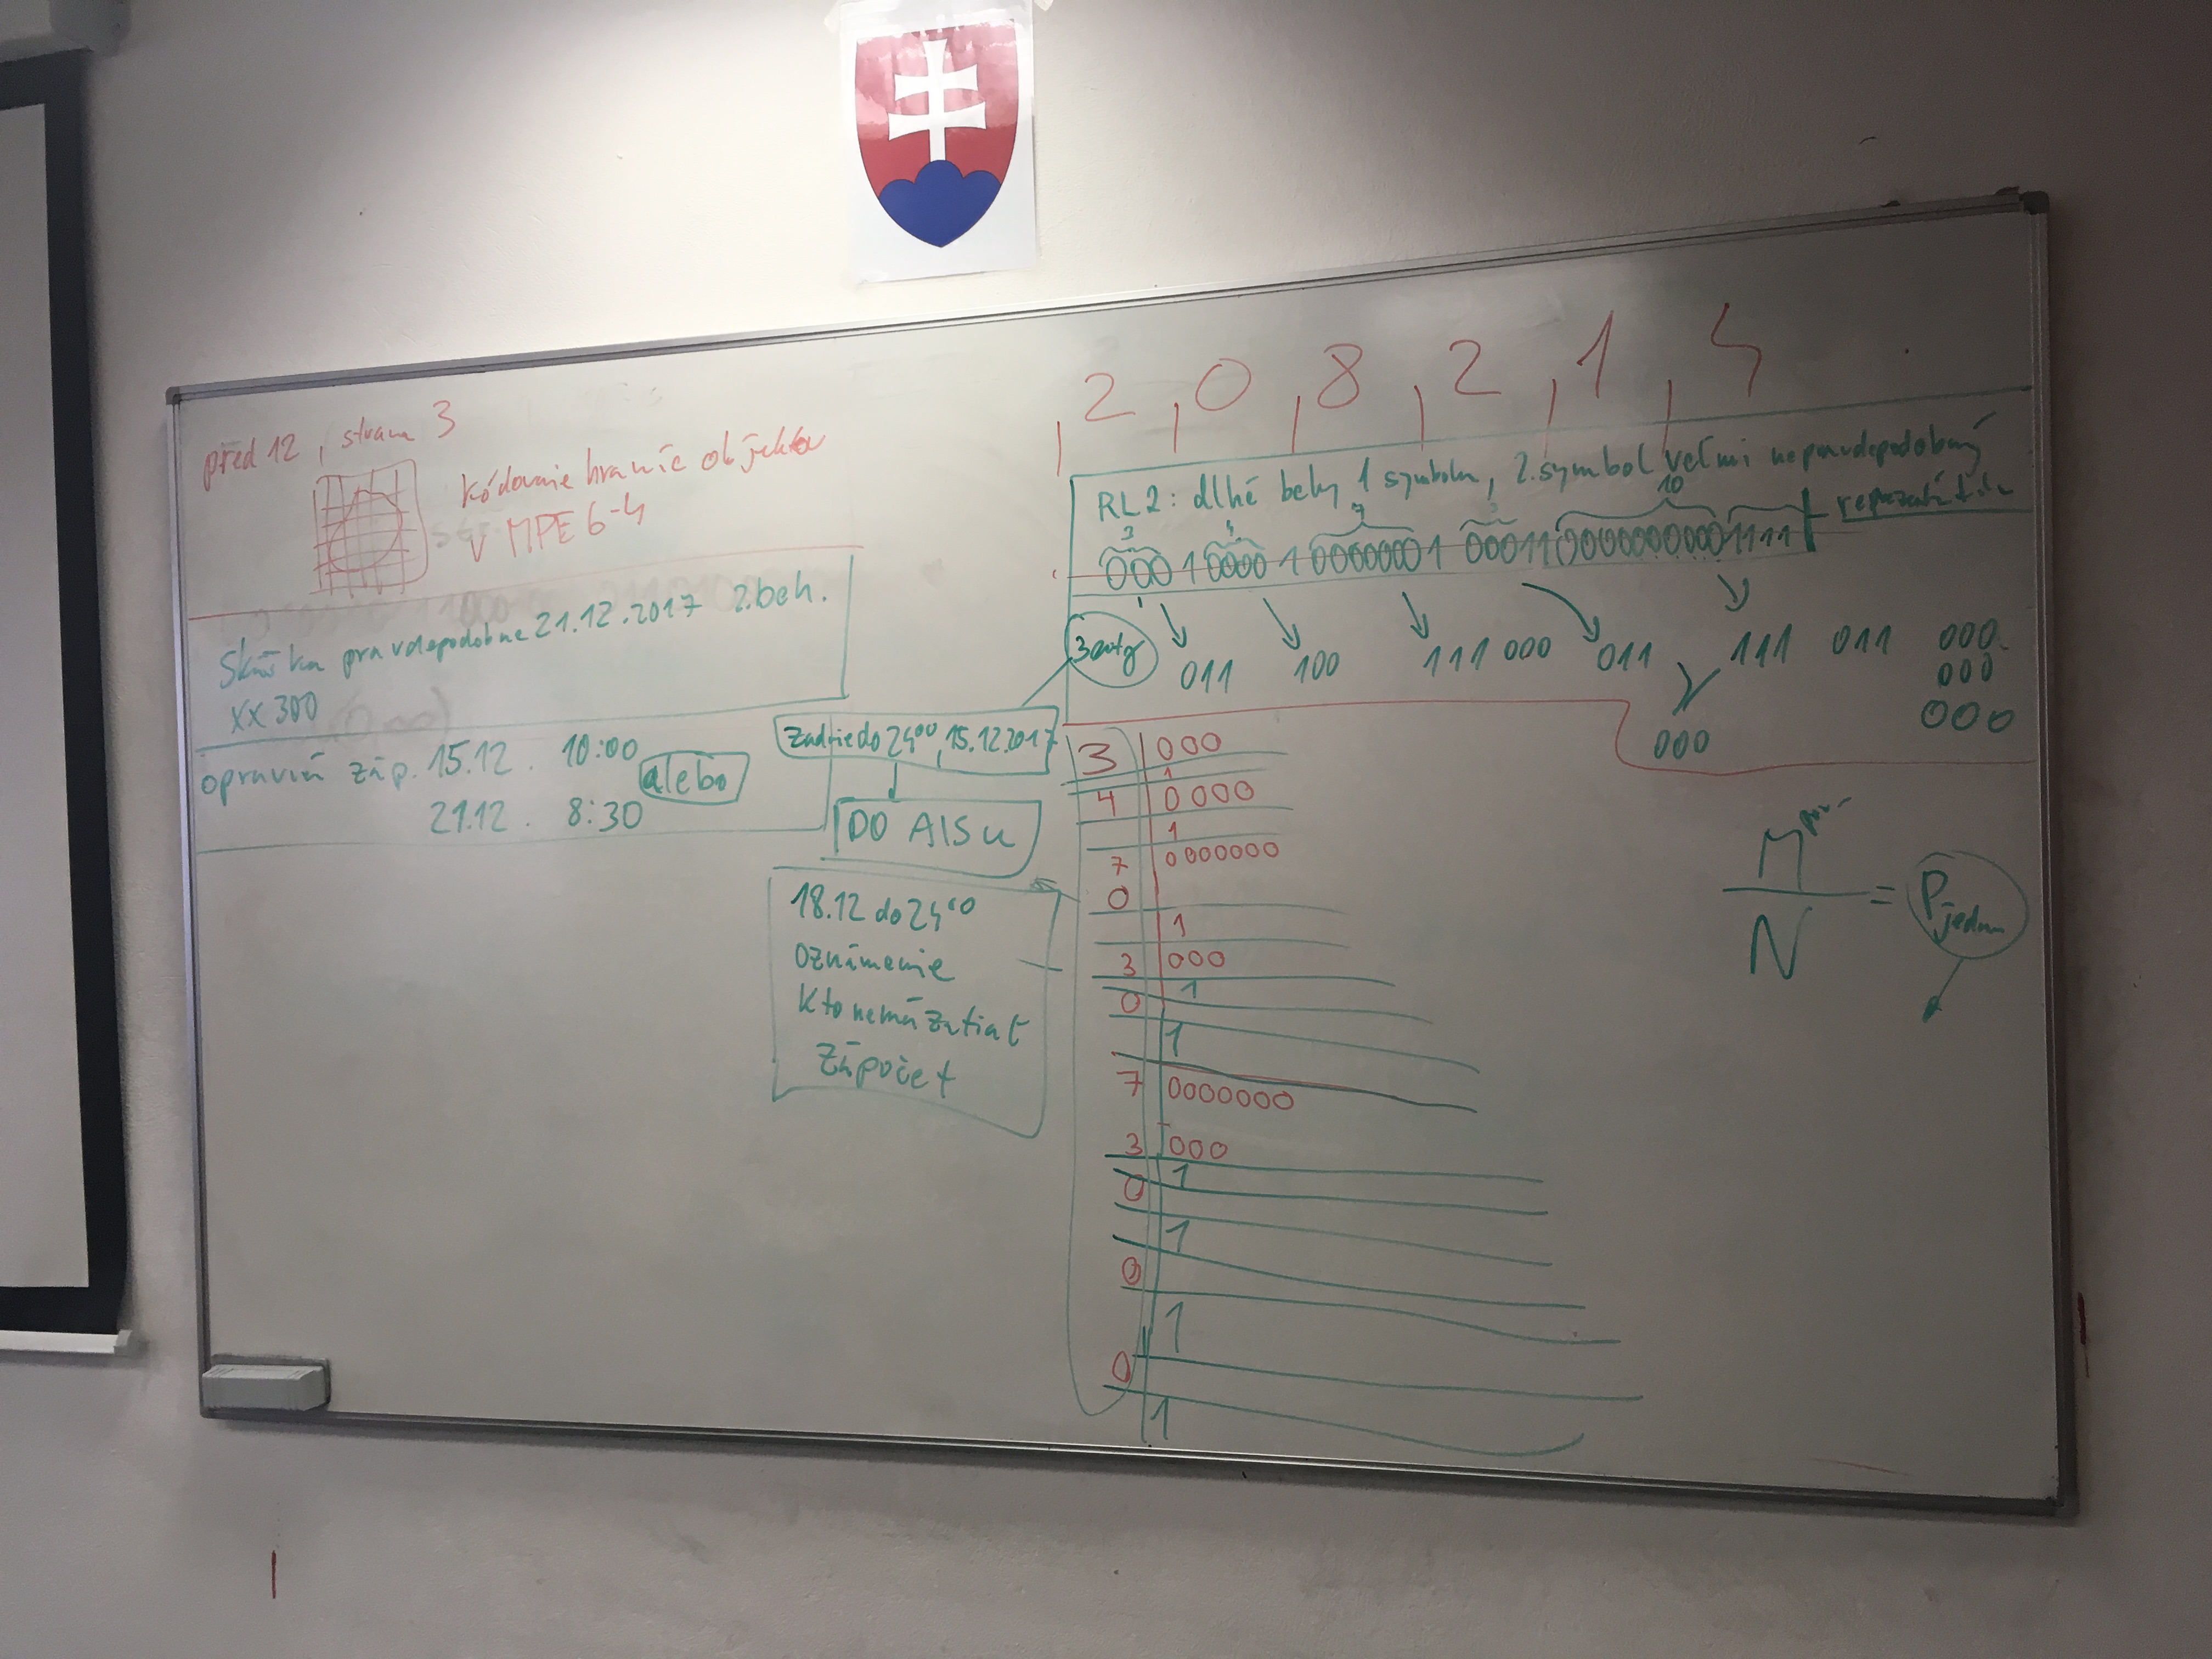 pred 12, strana 3
kódovanie hraníc objektov
v MPE 6-4
Skúška pravdepodobne 21.12.2017 2.beh.
XX 300
opravná záp. 15.12. 10:00
alebo
21.12. 8:30
Zadnie do 24⁰⁰, 15.12.2017
DO AISu
18.12 do 24⁰⁰
Oznámenie
Kto nemá zatiaľ
Zápočet
, 2 , 0 , 8 , 2 , 1 , 4
RL2: dlhé behy 1 symbolu, 2. symbol veľmi nepravdepodobný
3 4 7 3 10
000 1 0000 1 0000000 1 00011 0000000000 1111
011 100 111 000 011 111 011 000
000
000
000
3 000
1
4 0000
1
7 0000000
0
1
3 000
0 1
1
7 0000000
3 000
1
0
1
0
1
0
1
M
N
= P jedna